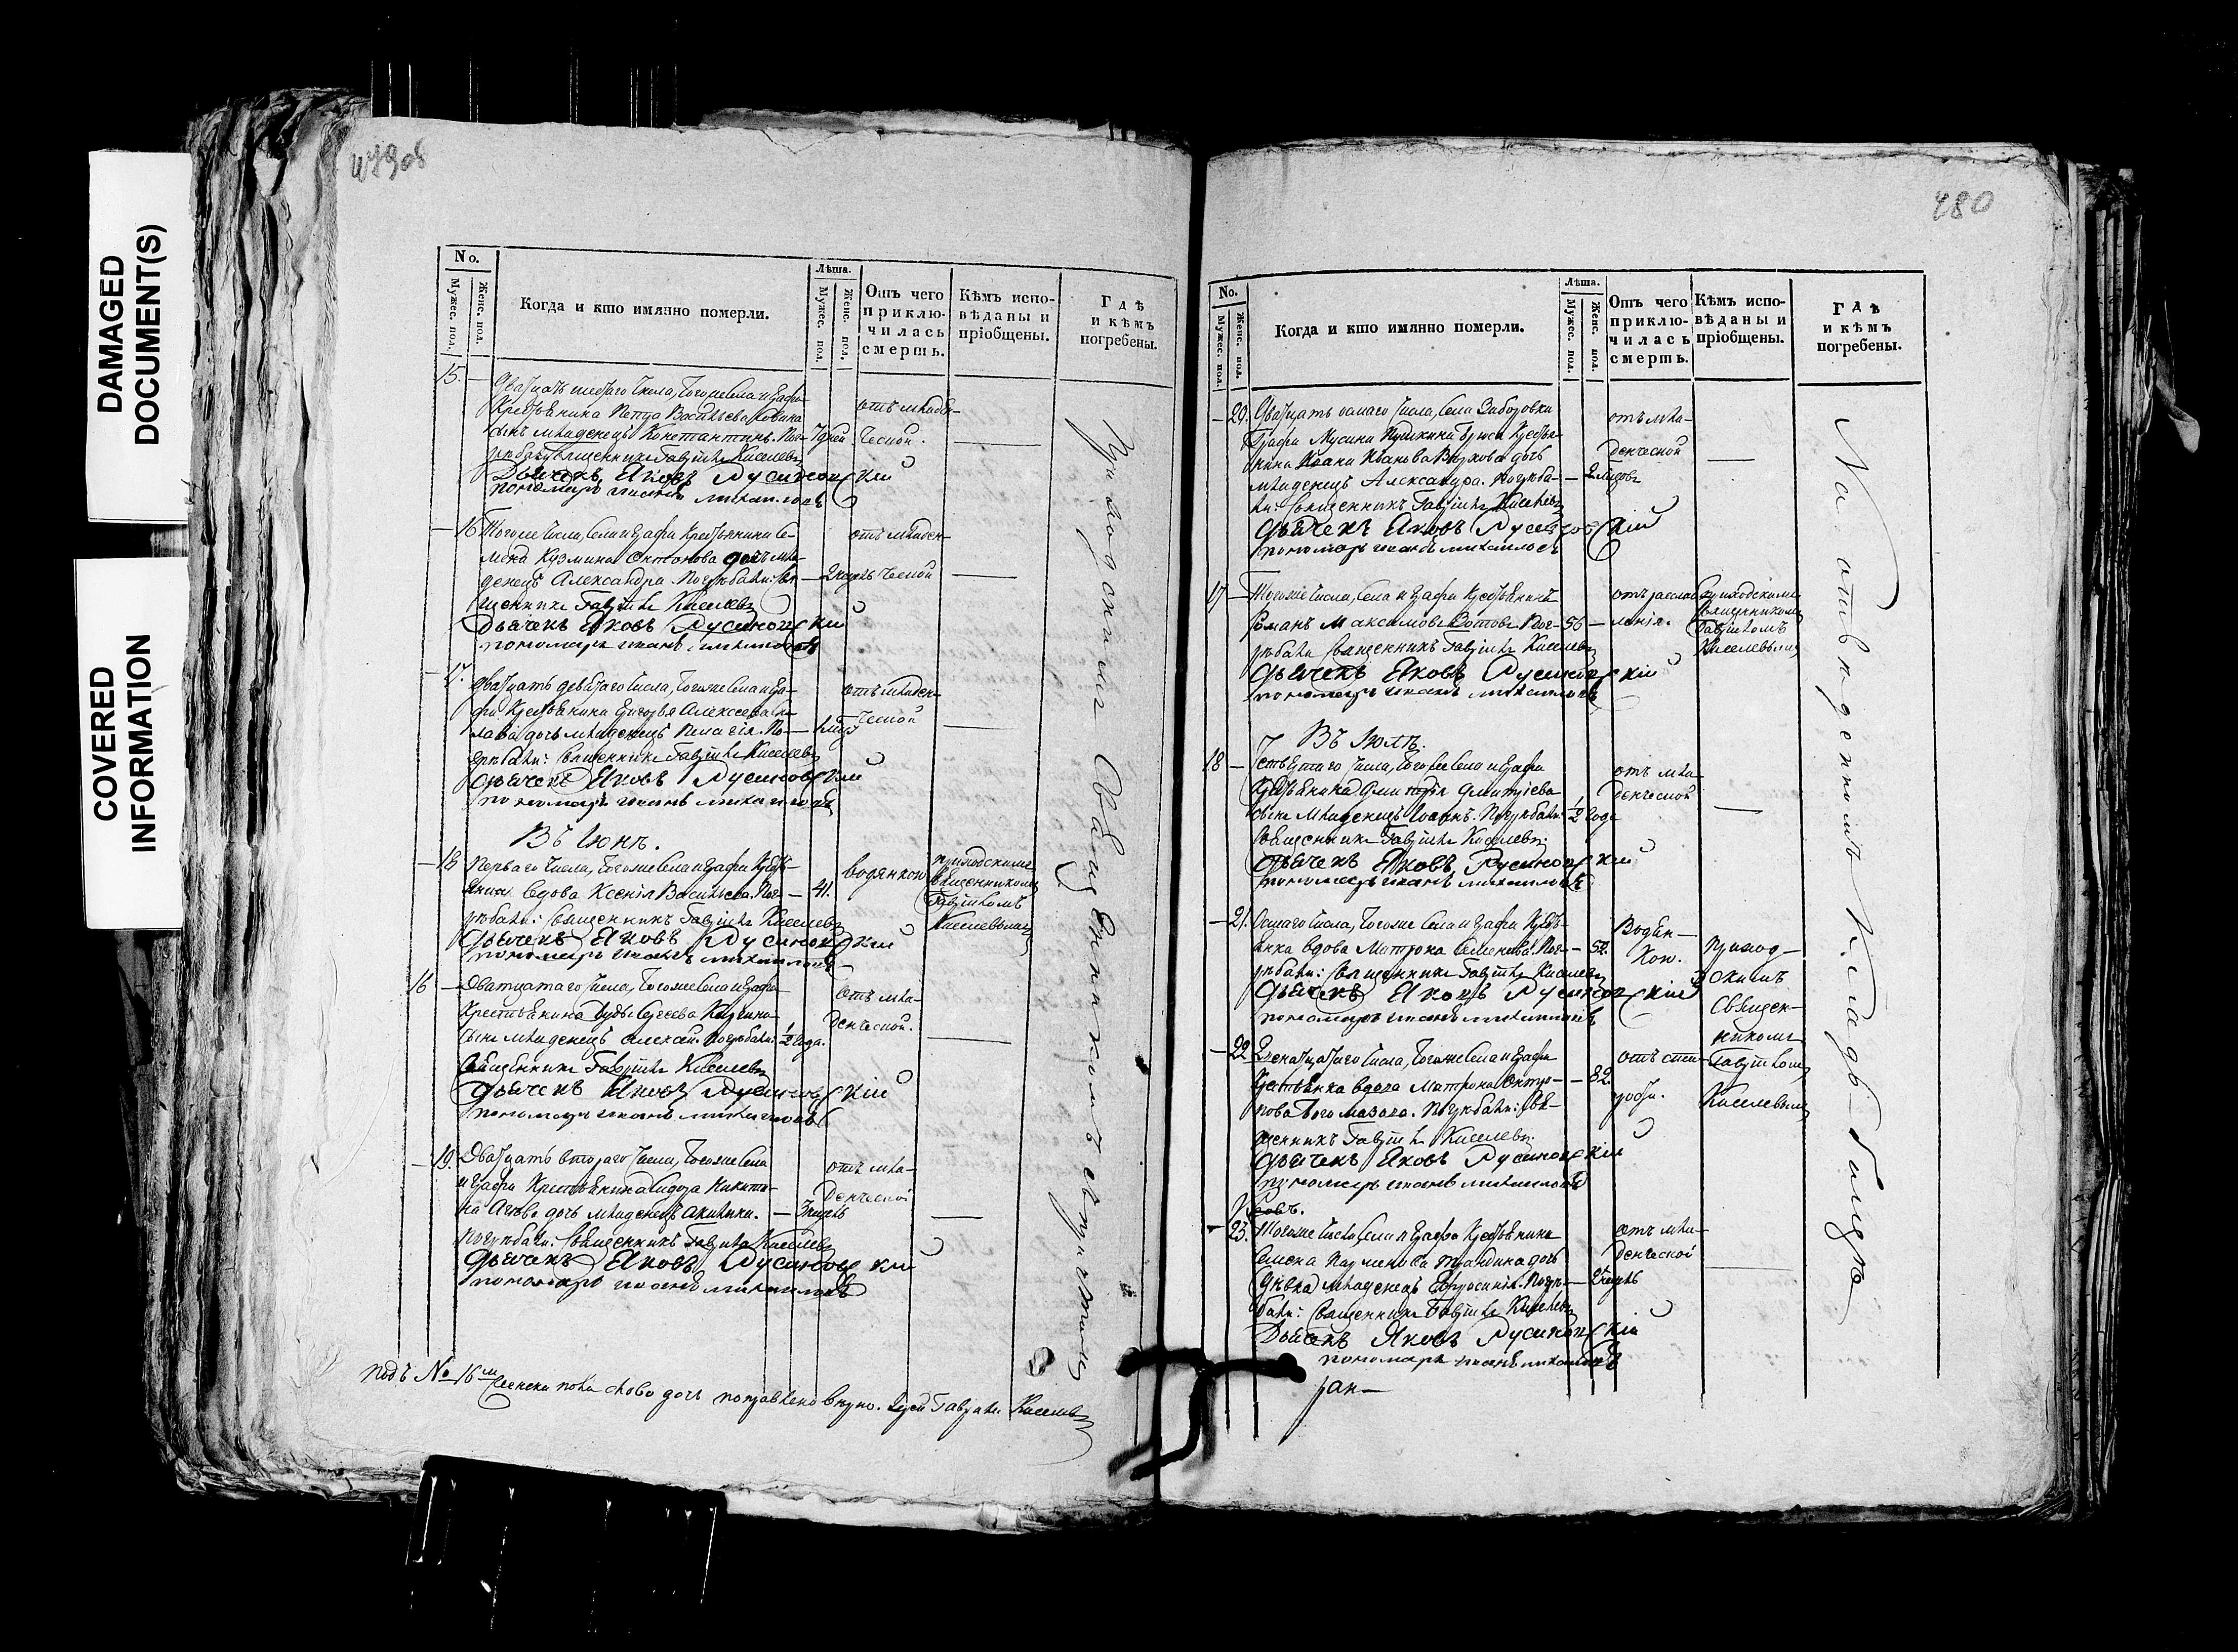 DAMAGED
DOCUMENT(S)
COVERED
INFORMATION
479об
No.
Мужес. пол.
Женс. пол.
Когда и кто имянно померли.
Лѣта.
Мужес. пол.
Женс. пол.
Отъ чего
приклю-
чилась
смерть.
Кѣмъ испо-
вѣданы и
пріобщены.
Гдѣ
и кѣмъ
погребены.
15. —
числа, тогоже села и Графа
Крестьянина Петра Васильева
сынъ младенецъ Константинъ. Пог-
ребалъ священникъ Гавріилъ Киселевъ
Дьячекъ Яковъ Русиновскій
пономарь Иванъ Михайловъ
7 дней
отъ младен-
ческой.
— 16 Тогоже числа, села и Графа Крестьянина Се-
мена Кузмина Антонова дочь мла-
денецъ Александра. Погребали: Свя-
щенникъ Гавріилъ Киселевъ
Дьячекъ Яковъ Русиновскій
пономарь Иванъ Михайловъ
— 2 недѣль
отъ младен-
ческой
— 17. Двадцать девятаго числа, тогоже села и Гра-
фа Крестьянина Григорья Алексеева
дочь младенецъ Пелагія. По-
гребали: священникъ Гавріилъ Киселевъ
Дьячекъ Яковъ Русиновскій
пономарь Иванъ Михайловъ
отъ младен-
ческой
Въ Іюнѣ.
— 18 Перваго числа, тогоже села и Графа Кресть-
янка вдова Ксенія Васильева. Пог-
ребали: Священникъ Гавріилъ Киселевъ
Дьячекъ Яковъ Русиновскій
пономарь Иванъ Михайловъ
— 41.
водянкою
приходскимъ
священникомъ
Гавріиломъ
Киселевымъ
16 — Двадцатаго числа, тогоже села и Графа
Крестьянина Сергеева
сынъ младенецъ Алексѣй. Погребали:
Священникъ Гавріилъ Киселевъ
Дьячекъ Яковъ Русиновскій
пономарь Иванъ Михайловъ
1/2 года.
отъ мла-
денческой.
— 19. Двадцать втораго числа, тогоже села
и Графа Крестьянина Сидора Никити-
на дочь младенецъ Акилина.
Погребали: Священникъ Гавріилъ Киселевъ
Дьячекъ Яковъ Русиновскій
пономарь Иванъ Михайловъ
— 3 недѣль
отъ мла-
денческой
Приходскимъ Священникомъ съ причтомъ
Подъ № 16м слово дочь поправлено вѣрно. Іерей Гавріилъ Киселевъ
480
No.
Мужес. пол.
Женс. пол.
Когда и кто имянно померли.
Лѣта.
Мужес. пол.
Женс. пол.
Отъ чего
приклю-
чилась
смерть.
Кѣмъ испо-
вѣданы и
пріобщены.
Гдѣ
и кѣмъ
погребены.
— 20. Двадцать осмаго числа, села Заборовки
Графа Мусина Пушкина Брюса Кресть-
янина Ивана Иванова дочь
младенецъ Александра. Погреба-
ли: Священникъ Гавріилъ Киселевъ
Дьячекъ Яковъ Русиновскій
пономарь Иванъ Михайловъ
отъ мла-
денческой
17 — Тогоже числа, села и Графа Крестьянинъ
Романъ Максимовъ Пог-
ребали Священникъ Гавріилъ Киселевъ
Дьячекъ Яковъ Русиновскій
пономарь Иванъ Михайловъ
56 —
отъ разсла-
бленія.
приходскимъ
священникомъ
Гавріиломъ
Киселевымъ
Въ Іюлѣ.
18 — числа, тогоже села и Графа
Крестьянина Дмитрія Дмитріева
сынъ младенецъ Іоаннъ. Погребали:
Священникъ Гавріилъ Киселевъ
Дьячекъ Яковъ Русиновскій
пономарь Иванъ Михайловъ
1/2 года
отъ мла-
денческой
— 21. Осмаго числа, тогоже села и Графа Кресть-
янка вдова Матрона Семенова. Пог-
ребали: Священникъ Гавріилъ Киселевъ
Дьячекъ Яковъ Русиновскій
пономарь Иванъ Михайловъ
— 52.
Водян-
кою.
приход-
скимъ
Священ-
никомъ
Гавріиломъ
Киселевымъ
— 22 числа, тогоже села и Графа
Крестьянка вдова Матрона
Погребали: Свя-
щенникъ Гавріилъ Киселевъ
Дьячекъ Яковъ Русиновскій
пономарь Иванъ Михайловъ
— 82.
отъ ста-
рости.
— 23. Тогоже числа, села и Графа Крестьянина
Семена Парменова дочь
дѣвка младенецъ Ефросинія. Погре-
бали: Священникъ Гавріилъ Киселевъ
Дьячекъ Яковъ Русиновскій
пономарь Иванъ Михайловъ
отъ мла-
денческой
На отведенномъ кладбищѣ